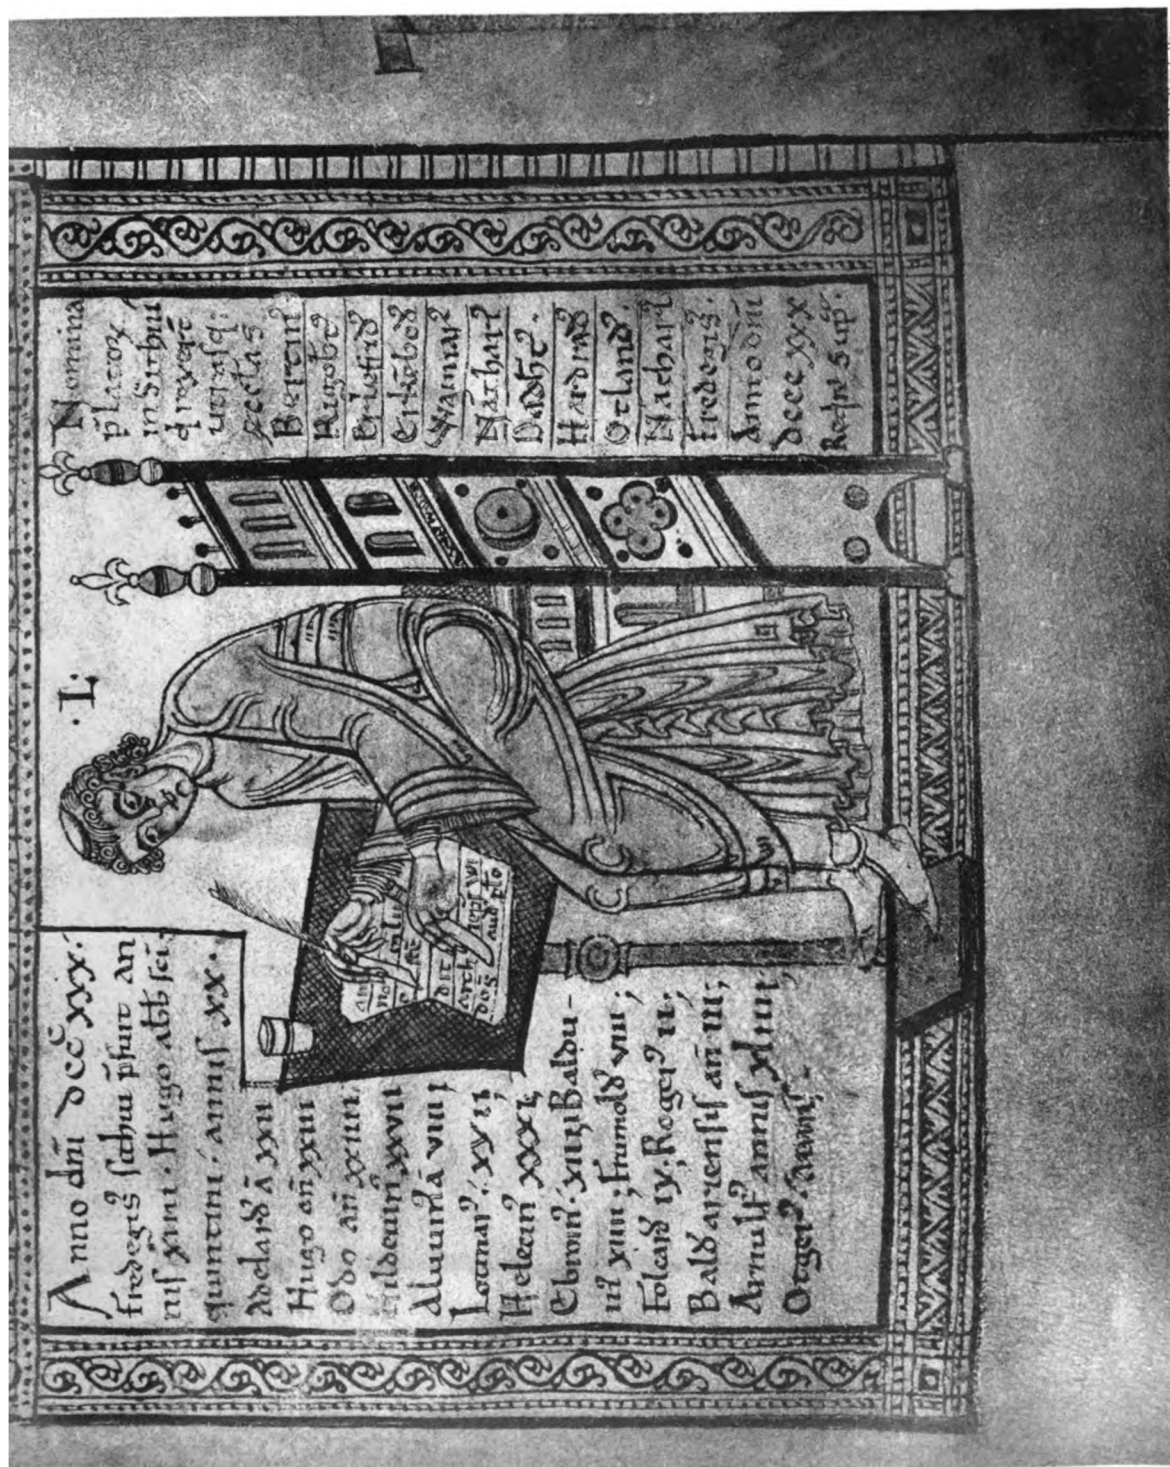 Anno dn̄i dccc̄ xxx.
fredegis̓ scithiu p̄fuit an
nis xiiii · Hugo abb sc̄i
quintini · annis xx ·
Adelard̓ ā xxii
Hugo an̄ xxiii
Odo an̄ xxiiii
hilduin̓ xxvii
Aluuin̓ ā viii ;
Helecin̓ xxxi;
Ebroin̓ · xiii; Baldu-
in̓ xiiii ; frumold̓ viiii ;
Folcard̓ ix ; Roger̓ ii ;
Bald̓ arriensis an̄ iii ;
Arnulf̓ annis xliiii ;
Otger̓
· L ·
Nomina
p̄latoꝝ
in Sithiu
utrasq;
sectas
Bertin̓
Rigobt̓
Erlefrid̓
Erkēbod̓
Wainnar̓
Nāthari̓
Dadbt̓ ·
Hardrad̓
Otland̓
Nathari̓
Fredegis̓ ·
Anno dn̄i
dccc xxx
Reqre sup̄ ·